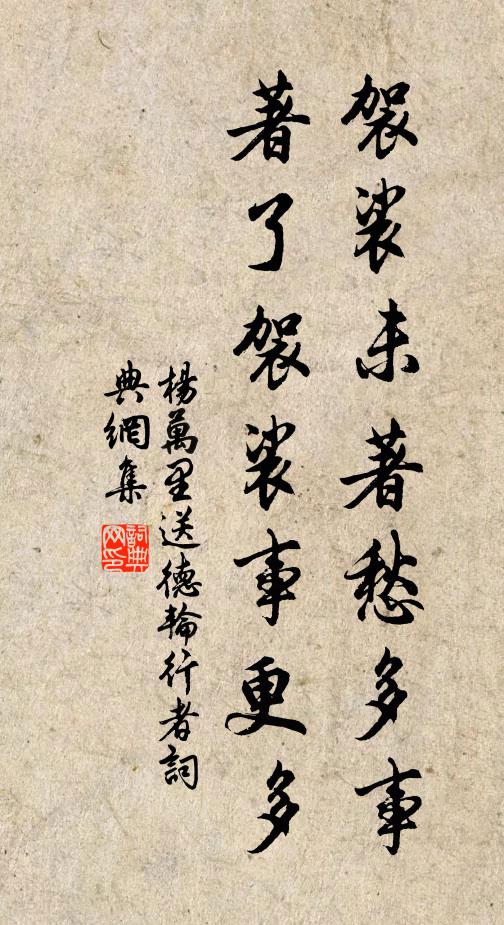 袈裟未著愁多事
著了袈裟事更多
楊萬里送德輪行者詞
典網集
詞典
网印